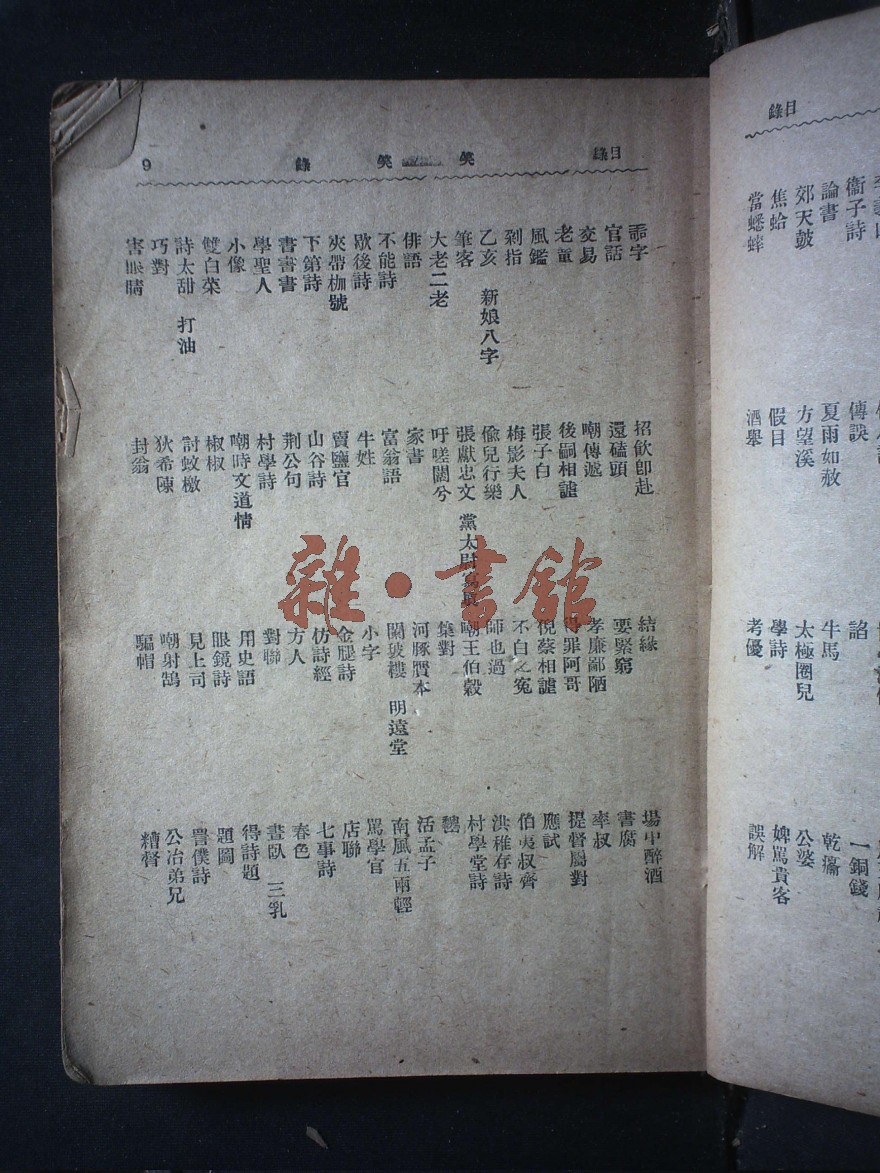 目錄
笑笑錄
9
字
官話
交易
老童
風鑑
剁指
乙亥　新娘八字
筆客
大老二老
俳語
不能詩
歇後詩
夾帶枷號
下第詩
書害書
學聖人
小像
雙白菜
詩太甜　打油
巧對
害眼睛
招飲卽赴
還磕頭
嘲傳遞
後嗣相謔
張子白
梅影夫人
偷兒行樂
張獻忠文　黨太尉
吁嗟闊兮
家書
富翁語
牛姓
賣鹽官
山谷詩
荆公句
村學詩
嘲時文道情
椒椒
討蚊檄
狄希陳
封翁
結緣
要緊窮
孝廉鄙陋
得罪阿哥
倪蔡相謔
不白之寃
師也過
嘲王伯穀
集對
河豚贋本
鬭玻樓　明遠堂
小字
金腿詩
仿詩經
方人
對聯
用史語
眼鏡詩
見上司
嘲射鵠
騙帽
塲中醉酒
書腐
率叔
提督屬對
應試
伯夷叔齊
洪稚存詩
村學堂詩
活孟子
南風五兩輕
罵學官
店聯
七事詩
春色
晝臥　三乳
得詩題
題圖
詈僕詩
公冶弟兄
糟督
目錄
衞子詩
論書
郊天鼓
焦蛤
當蟋蟀
傳訣
夏雨如赦
方望溪
假目
酒舉
諂
牛馬
太極圈兒
學詩
考優
一銅錢
乾瀹
公婆
婢罵貴客
誤解
雜·書館